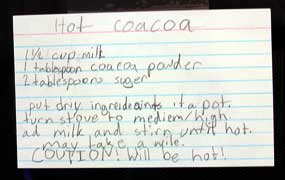 Hot coacoa
1 1/2 cup milk
1 tablespoon coacoa powder
2 tablespoons suger
put driy ingreideints it a pot.
turn stove to mediem/high.
ad milk and stirn until hot.
may take a wile.
COUTION! Will be hot!